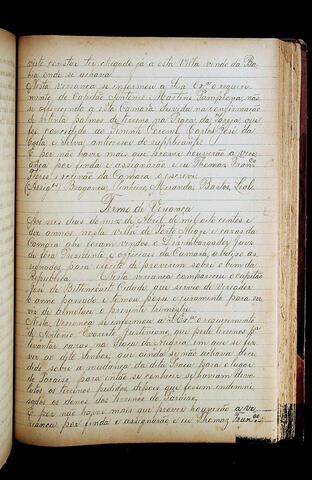 visto constar ter chegado já a esta Villa vindo da Ba-
hia onde se achava.
Nesta vereança se informou a Sua Exª o requeri-
mento do Capitão Antonio Martins Pamplona, não
se oferecendo a esta Camara duvida na confirmação
de trinta palmos de terreno na Praça da Igreja, que
foi concedido ao Tenente Coronel Carlos José da
Costa e Silva, antecessor do supplicante.
E por não haver mais que prover houverão a vere-
ança por finda e assignarão e eu Thomaz Franco
Flores escrivão da Camara o escrevi.
(Assigº) Bragança, Pinheiro, Miranda, Bastos, Leite
Termo de Vereança
Aos seis dias do mez de Abril de mil oito centos e
dez annos nesta Villa de Porto Alegre e cazas da
Camara ahi foram vindos o Dezembargador Juiz
de fora Presidente e officiaes da Camara, abaixo as-
signados, para efeito de proverem sobre o bem da
Republica. Nesta vereança compareceu o capitão
José de Bittencourt Cidade, que serviu de Vereador
o anno passado e tomou posse e juramento para ser-
vir de almotacé o presente trimestre.
Nesta Vereança se informou a S. Exª o requerimento
de Antonio Evaristo Justiniano, que pede terrenos pª
levantar cazas na Praça da Igreja em que se fez
ver ao dito Senhor, que ainda se não achava deci-
dido sobre a mudança da dita Praça para o lugar
do Paraiso, para então se conhecer se haviam devo-
lutos os terrenos pedidos depois que foram indemni-
sados os donos dos terrenos do Paraiso.
E por não haver mais que prover houverão a ve-
reança por finda e assignarão e eu Thomaz Franco